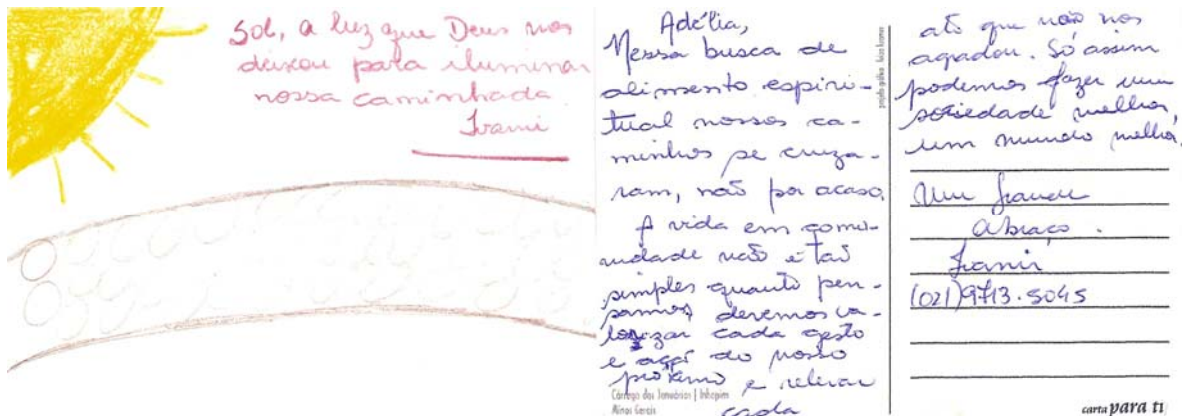 Sol, a luz que Deus nos
deixou para iluminar
nossa caminhada
Irani
Adélia,
Nessa busca de
alimento espiri-
tual nossos ca-
minhos se cruza-
ram, não por acaso.
A vida em comu-
nidade não é tão
simples quanto pen-
samos, devemos va-
lorizar cada gesto
e ação do nosso
próximo e relevar
cada
Córrego dos Januários | Inhapim
Minas Gerais
projeto gráfico
até que não nos
agradou. Só assim
podemos fazer uma
sociedade melhor,
um mundo melhor.
Um grande
abraço.
Irani
(021)9713.5045
carta para ti